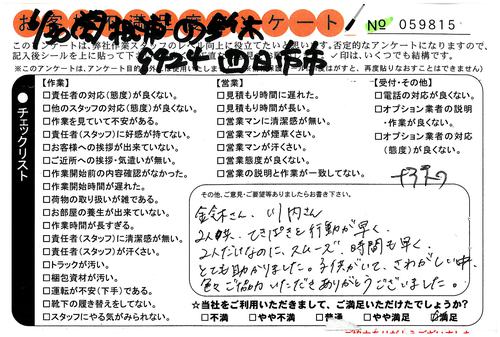 お客様 アンケート!
№ 059815
このアンケートは、弊社作業スタッフのレベル向上に役立てたいと思います。否定的なアンケートになりますので、
記入後シールを上に貼って下 印は、いくつでも結構です。
※このアンケートは、アンケート目的 がすと、再度貼りなおすことはできません)
6924 四日市市
チェックリスト
【作業】
□責任者の対応(態度)が良くない。
□他のスタッフの対応(態度)が良くない。
□作業を見ていて不安がある。
□責任者(スタッフ)に好感が持てない。
□お客様への挨拶が出来ていない。
□ご近所への挨拶・気遣いが無い。
□作業開始前の内容確認がなかった。
□作業開始時間が遅れた。
□荷物の取り扱いが雑である。
□お部屋の養生が出来ていない。
□作業時間が長すぎる。
□責任者(スタッフ)に清潔感が無い。
□責任者(スタッフ)が汗くさい。
□トラックが汚い。
□梱包資材が汚い。
□運転が不安(下手)である。
□靴下の履き替えをしてない。
□スタッフにやる気がみられない。
【営業】
□見積もり時間に遅れた。
□見積もり時間が長い。
□営業マンに清潔感が無い。
□営業マンが煙草くさい。
□営業マンが汗くさい。
□営業態度が良くない。
□営業の説明と作業が一致してない。
【受付・その他】
□電話の対応が良くない。
□オプション業者の説明
・作業が良くない。
□オプション業者の対応
(態度)が良くない。
その他、ご意見・ご要望等ありましたらお書き下さい。
鈴木さん、川内さん
2人共、てきぱきと行動が早く、
2人だけなのに、スムーズ、時間も早く、
とても助かりました。子供がいて、さわがしい中、
色々ご協力いただきありがとうございました。
☆当社をご利用いただきまして、ご満足いただけたでしょうか?
□不満 □やや不満 □普通 □やや満足 ☑満足